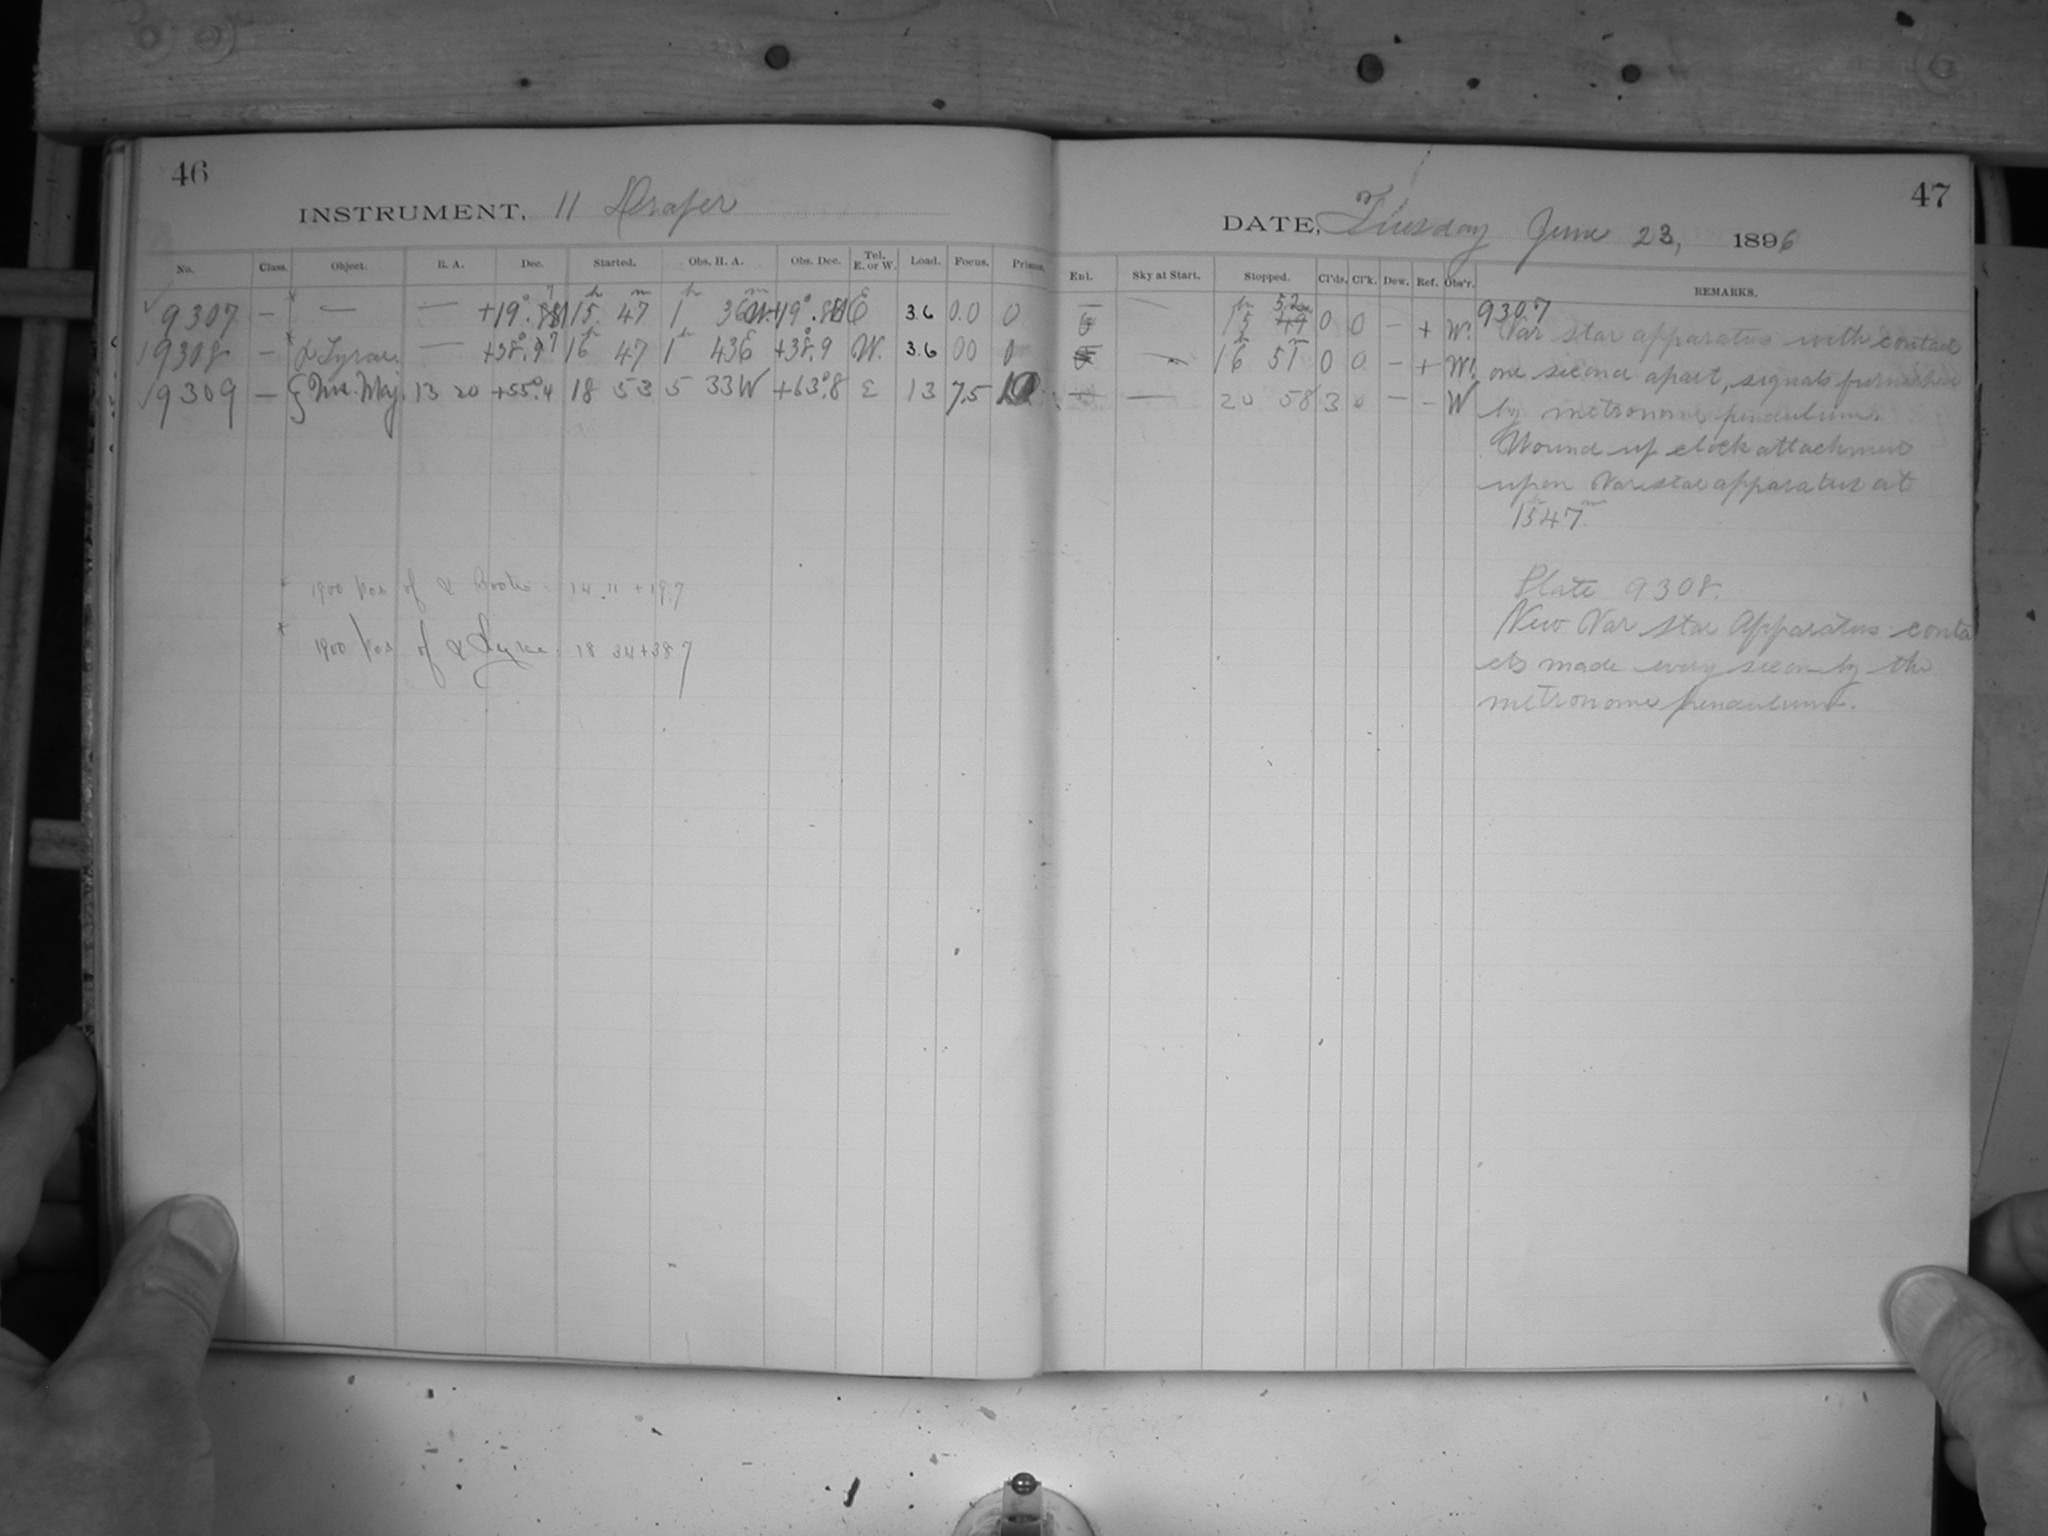 46
INSTRUMENT, 11 Draper
No. Class. Object. R. A. Dec. Started. Obs. H. A. Obs. Dec. Tel. E. or W. Load. Focus. Prisms.
9307 — * — — +19°. 15h 47m 1h 36m +19°.8 E 3.6 0.0 0
9308 — * α Lyrae. — +38°.9 7 16h 47 1h 43E +38°.9 W. 3.6 00 0
9309 — ζ Urs. Maj. 13 20 +55°.4 18 53 5 33W +63°.8 E 13 7.5
* 1900 pos of α Bootis - 14 11 +19.7
* 1900 Pos of α Lyrae. 18 34 +38 7
47
DATE, Tuesday June 23, 1896
Enl. Sky at Start. Stopped. Cl'ds. Cl'k. Dew. Ref. Obs'r. REMARKS.
— 15h 49 52m 0 0 — + W.
— 16h 51m 0 0 — + W.
— 20 58 3 0 — — W
9307
Var star apparatus with contact
one second apart, signals furnished
by metronome pendulum.
Wound up clock attachment
upon Var star apparatus at
15h47m.
Plate 9308.
New Var star Apparatus conta
cts made every secon by the
metronome pendulum.